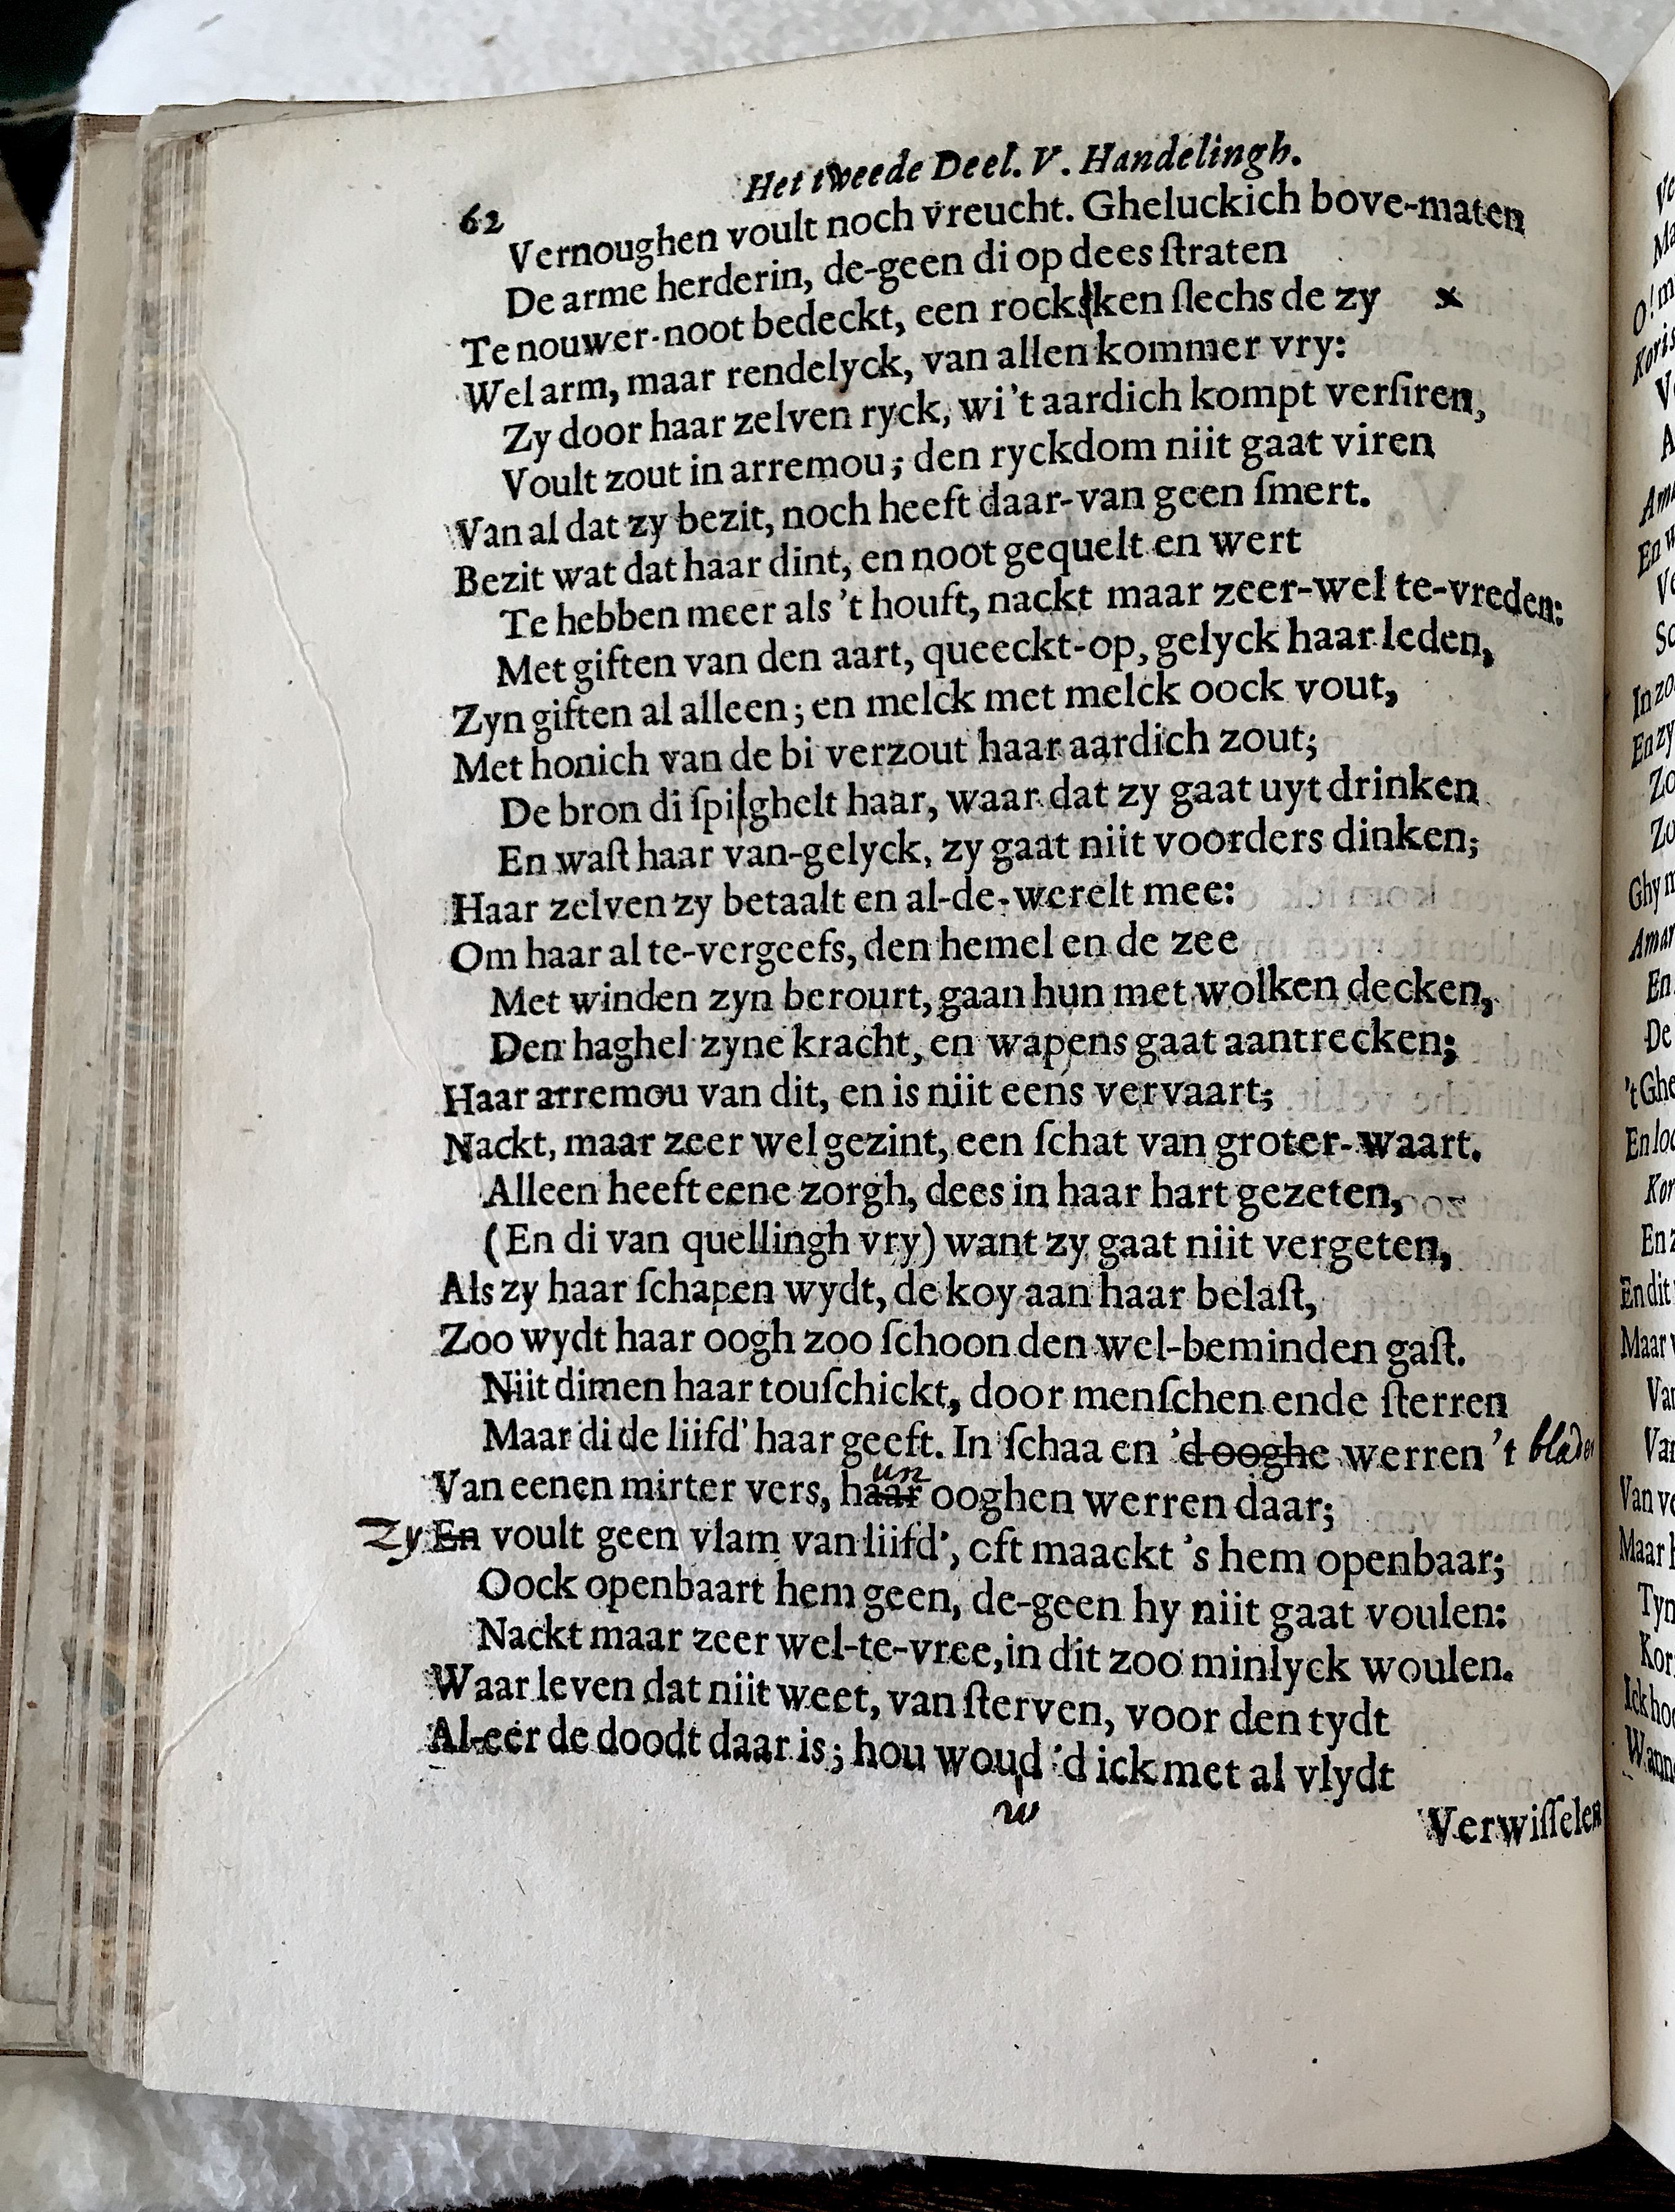 Het tweede Deel. V. Handelingh.
62
Vernoughen voult noch vreucht. Gheluckich bove-maten
De arme herderin, de-geen di op dees ſtraten
Te nouwer-noot bedeckt, een rockſken ſlechs de zy x
Wel arm, maar rendelyck, van allen kommer vry:
Zy door haar zelven ryck, wi't aardich kompt verſiren,
Voult zout in arremou; den ryckdom niit gaat viren
Van al dat zy bezit, noch heeft daar-van geen ſmert.
Bezit wat dat haar dint, en noot gequelt en wert
Te hebben meer als 't houft, nackt maar zeer-wel te-vreden:
Met giften van den aart, queeckt-op, gelyck haar leden,
Zyn giften al alleen; en melck met melck oock vout,
Met honich van de bi verzout haar aardich zout;
De bron di ſpiſghelt haar, waar dat zy gaat uyt drinken
En waſt haar van-gelyck, zy gaat niit voorders dinken;
Haar zelven zy betaalt en al-de-werelt mee:
Om haar al te-vergeefs, den hemel en de zee
Met winden zyn berourt, gaan hun met wolken decken,
Den haghel zyne kracht, en wapens gaat aantrecken;
Haar arremou van dit, en is niit eens vervaart;
Nackt, maar zeer wel gezint, een ſchat van groter-waart.
Alleen heeft eene zorgh, dees in haar hart gezeten,
(En di van quellingh vry) want zy gaat niit vergeten,
Als zy haar ſchapen wydt, de koy aan haar belaſt,
Zoo wydt haar oogh zoo ſchoon den wel-beminden gaſt.
Niit dimen haar touſchickt, door menſchen ende ſterren
Maar di de liifd' haar geeft. In ſchaa en 'd ooghe werren 't blader
un
Van eenen mirter vers, haar ooghen werren daar;
Zy En voult geen vlam van liifd', oft maackt 's hem openbaar;
Oock openbaart hem geen, de-geen hy niit gaat voulen:
Nackt maar zeer wel-te-vree, in dit zoo minlyck woulen.
Waar leven dat niit weet, van ſterven, voor den tydt
Al-eer de doodt daar is; hou woud 'd ick met al vlydt
w
Verwiſſelen